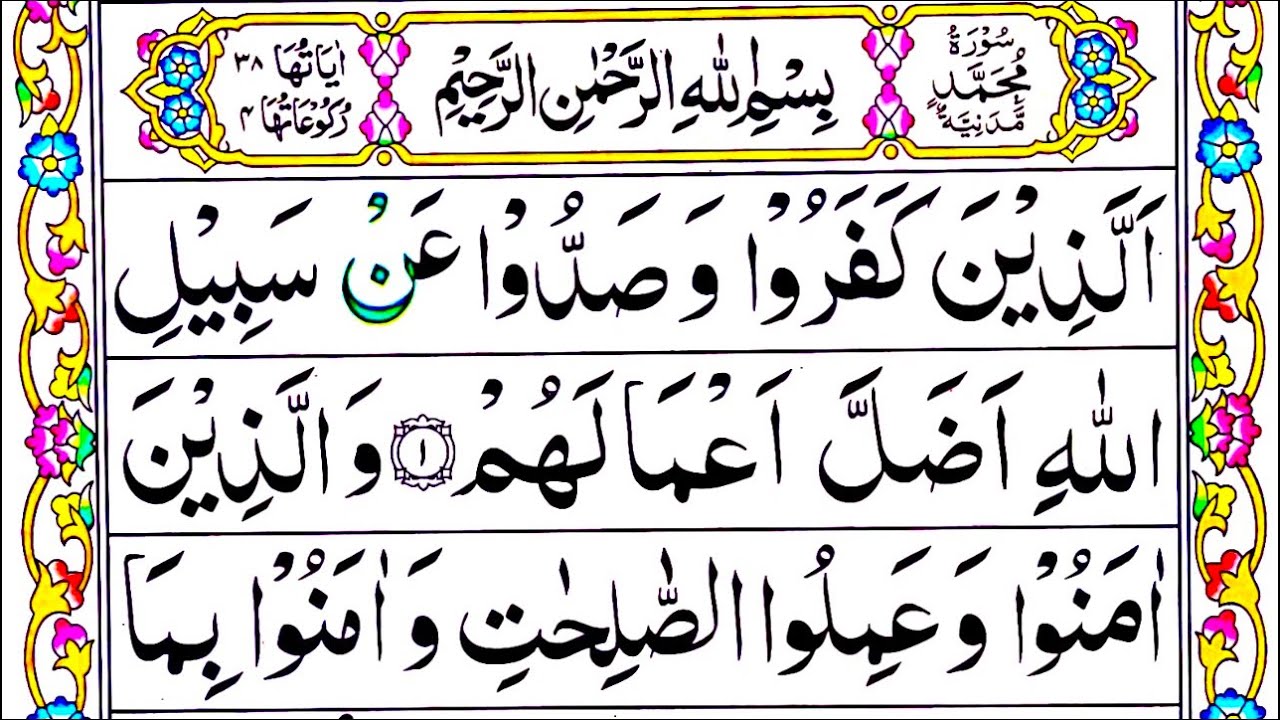 سُوْرَةُ
مُحَمَّدٍ
مَّدَنِيَّةٌ
بِسْمِ اللّٰهِ الرَّحْمٰنِ الرَّحِيْمِ
اٰيَاتُهَا ٣٨
رُكُوْعَاتُهَا ٤
اَلَّذِيْنَ كَفَرُوْا وَ صَدُّوْا عَنْ سَبِيْلِ
اللّٰهِ اَضَلَّ اَعْمَالَهُمْ ١ وَ الَّذِيْنَ
اٰمَنُوْا وَ عَمِلُوا الصّٰلِحٰتِ وَ اٰمَنُوْا بِمَا